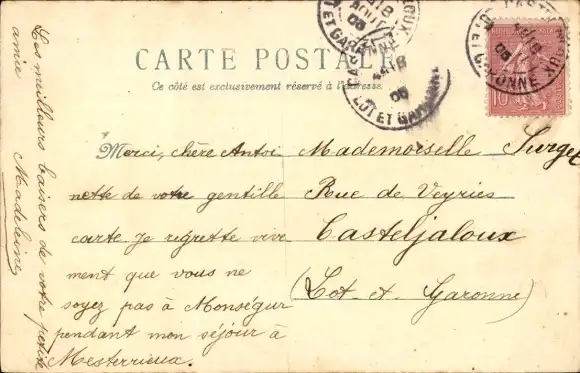 CARTE POSTALE
Ce côté est exclusivement réservé à l'adresse.
Merci, chère Antoi
nette de votre gentille
carte. Je regrette vive
ment que vous ne
soyez pas à Monségur
pendant mon séjour à
Mesterrieux.
Les meilleurs baisers de votre petite
amie
Madeleine
Mademoiselle Surget
Rue de Veyries
Casteljaloux
(Lot-et-Garonne)
LOT ET GARONNE
05
10